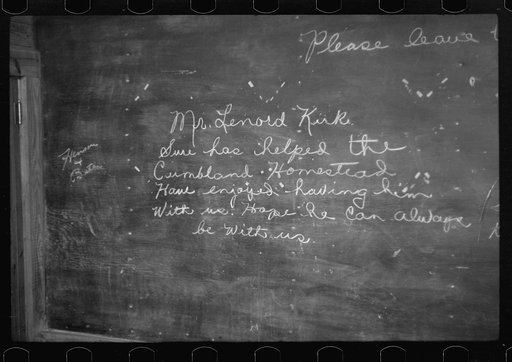 Please leave
Mr. Lenord Kirk.
Sure has helped the
Cumbland Homestead
Have enjoyed having him
With us. Hope he can always
be with us.